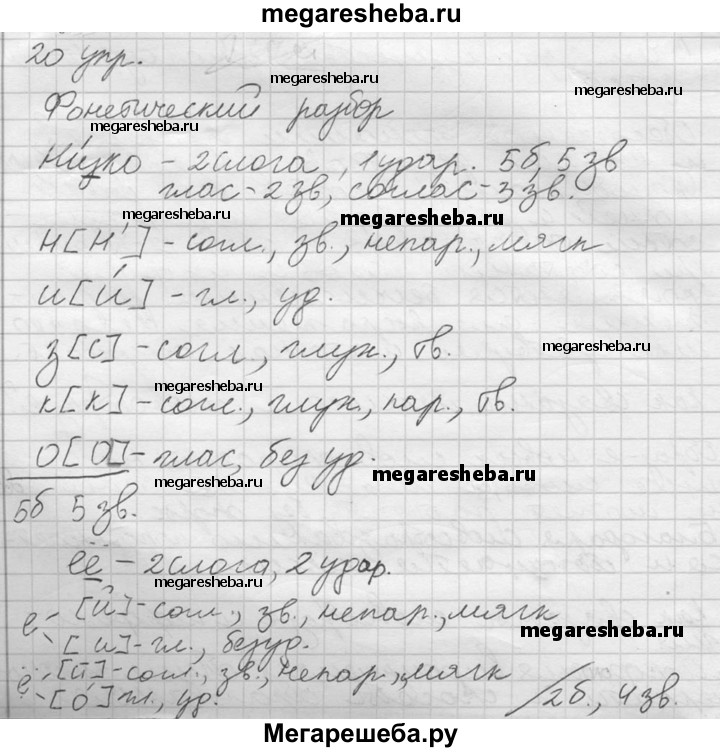 megaresheba.ru
20 упр.
megaresheba.ru
megaresheba.ru
Фонетический разбор
megaresheba.ru
Низко - 2 слога, 1 удар. 5б, 5 зв
глас - 2 зв, соглас - 3 зв.
megaresheba.ru
megaresheba.ru
н [н'] - согл., зв., непар., мягк
и [и́] - гл., уд.
з [с] - согл., глух., тв.
megaresheba.ru
megaresheba.ru
к [к] - согл., глух., пар., тв.
о [о] - глас, без уд.
megaresheba.ru
megaresheba.ru
5б 5 зв.
её - 2 слога, 2 удар.
megaresheba.ru
е [й] - согл., зв., непар., мягк
[и] - гл., безуд.
megaresheba.ru
ё [й] - согл., зв., непар., мягк
megaresheba.ru
[о́] гл., уд.
2б., 4 зв.
Мегарешеба.ру